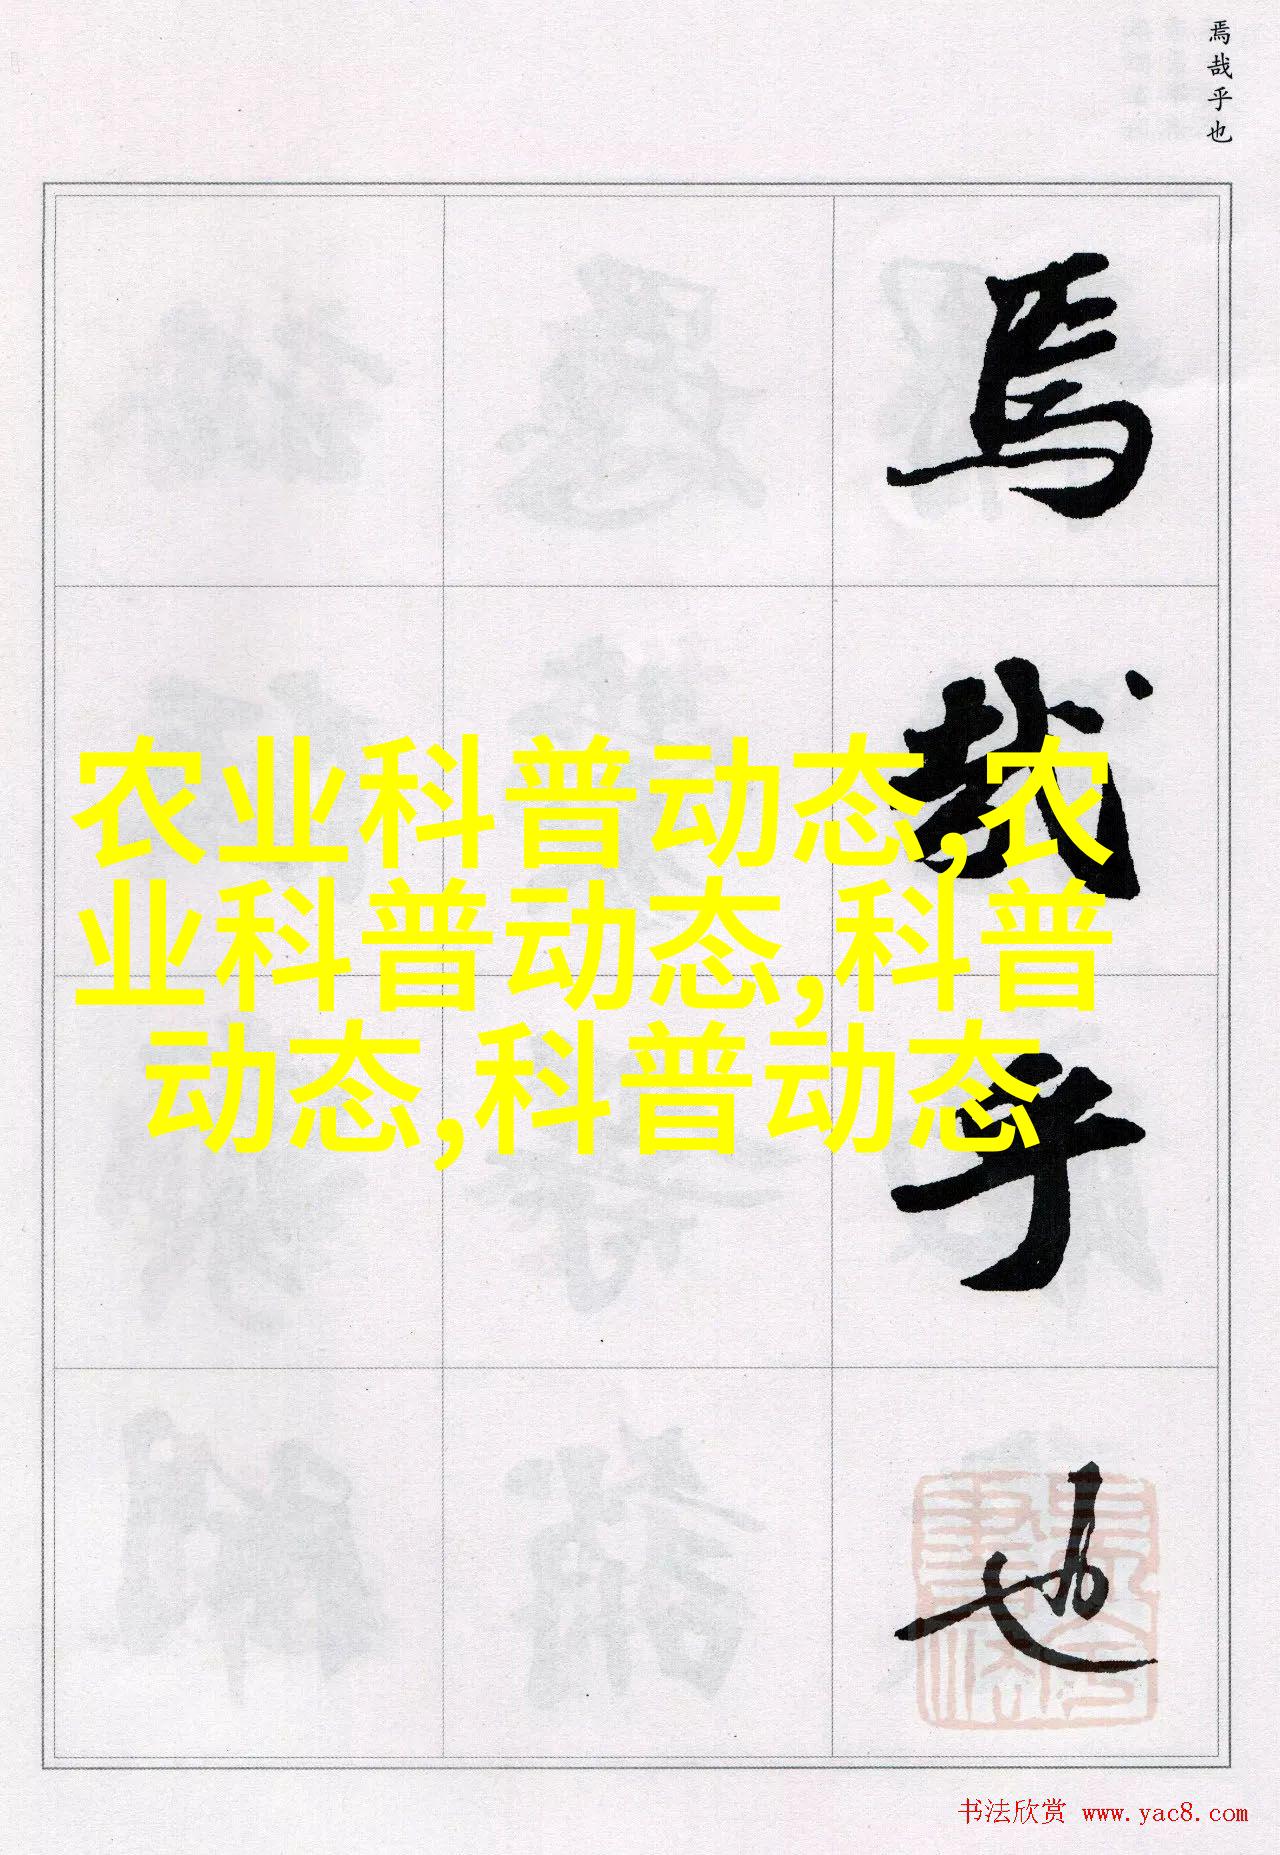 焉哉乎也
焉
哉
乎
也
农业科普动态,农
业科普动态,科普
动态,科普动态
书法欣赏 www.yac8.com